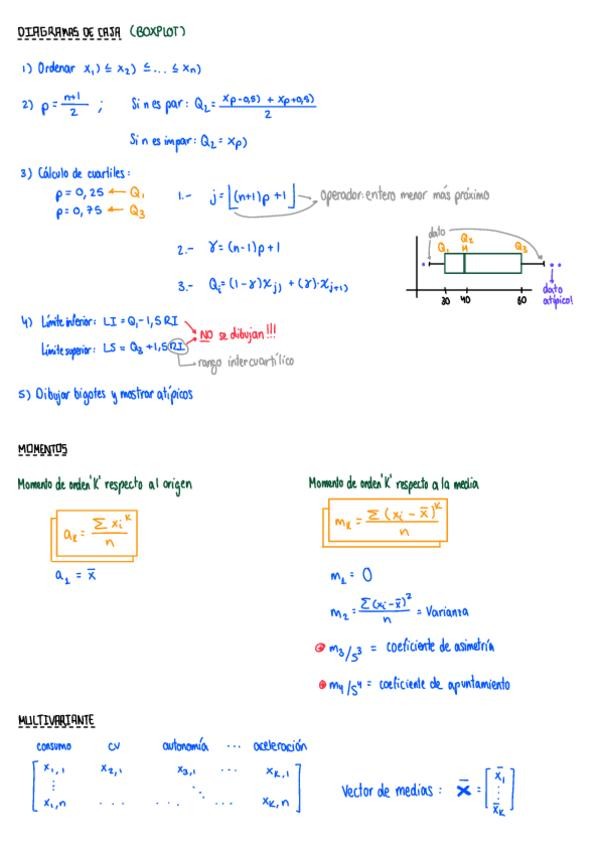 DIAGRAMAS DE CAJA (BOXPLOT)
1) Ordenar x₁) ≤ x₂) ≤ ... ≤ xₙ)
2) p = (n+1)/2 ; Si n es par: Q₂ = (xp-0,5) + xp+0,5))/2
Si n es impar: Q₂ = xp)
3) Cálculo de cuartiles:
p = 0,25 ← Q₁
p = 0,75 ← Q₃
1.- j = ⌊(n+1)p + 1⌋ → operador: entero menor más próximo
2.- γ = (n-1)p + 1
3.- Qᵢ = (1-γ)xⱼ) + (γ)·xⱼ₊₁)
dato
Q₁ Q₂ Q₃
M
30 40 60
dato
atípico!
4) Límite inferior: LI = Q₁ - 1,5 RI
NO se dibujan!!!
Límite superior: LS = Q₃ + 1,5 RI
rango intercuartílico
5) Dibujar bigotes y mostrar atípicos
MOMENTOS
Momento de orden 'K' respecto al origen
aₖ = Σ xᵢᴷ / n
a₁ = x̄
Momento de orden 'K' respecto a la media
mₖ = Σ (xᵢ - x̄)ᴷ / n
m₁ = 0
m₂ = Σ(xᵢ - x̄)² / n = Varianza
m₃/s³ = coeficiente de asimetría
m₄/s⁴ = coeficiente de apuntamiento
MULTIVARIANTE
consumo CV autonomía ... aceleración
x₁,₁ x₂,₁ x₃,₁ ... xK,₁
⋮ ⋱ ⋮
x₁,n ... ... ... xK,n
Vector de medias: x̄ = [x̄₁ ⋮ x̄K]